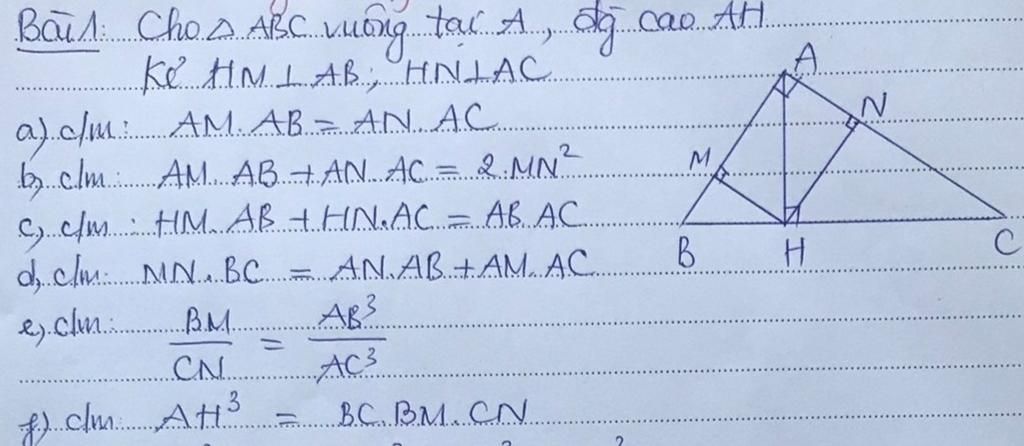 Bài 1: Cho △ ABC vuông tại A, đg cao AH
Kẻ HM ⊥ AB; HN ⊥ AC
a) c/m: AM. AB = AN. AC
b, c/m: AM. AB + AN. AC = 2. MN²
c, c/m: HM. AB + HN. AC = AB. AC
d, c/m: MN. BC = AN. AB + AM. AC
e, c/m: BM/CN = AB³/AC³
f) c/m: AH³ = BC. BM. CN
A
N
M
B H C